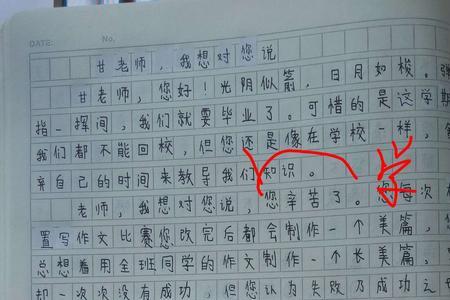 DATE: No.
甘老师，我想对您说
甘老师，您好！光阴似箭，日月如梭。弹
指一挥间，我们就要毕业了。可惜的是这学期
我们都不能回校，但您还是像在学校一样，
弃自己的时间来教导我们知识。
学
老师，我想对您说，您辛苦了。您每次
置写作文比赛您改完后都会制作一个美篇，
总想着用全班同学的作文制作一个长美篇，
却一次次没有成功，但您认为失败乃成功之